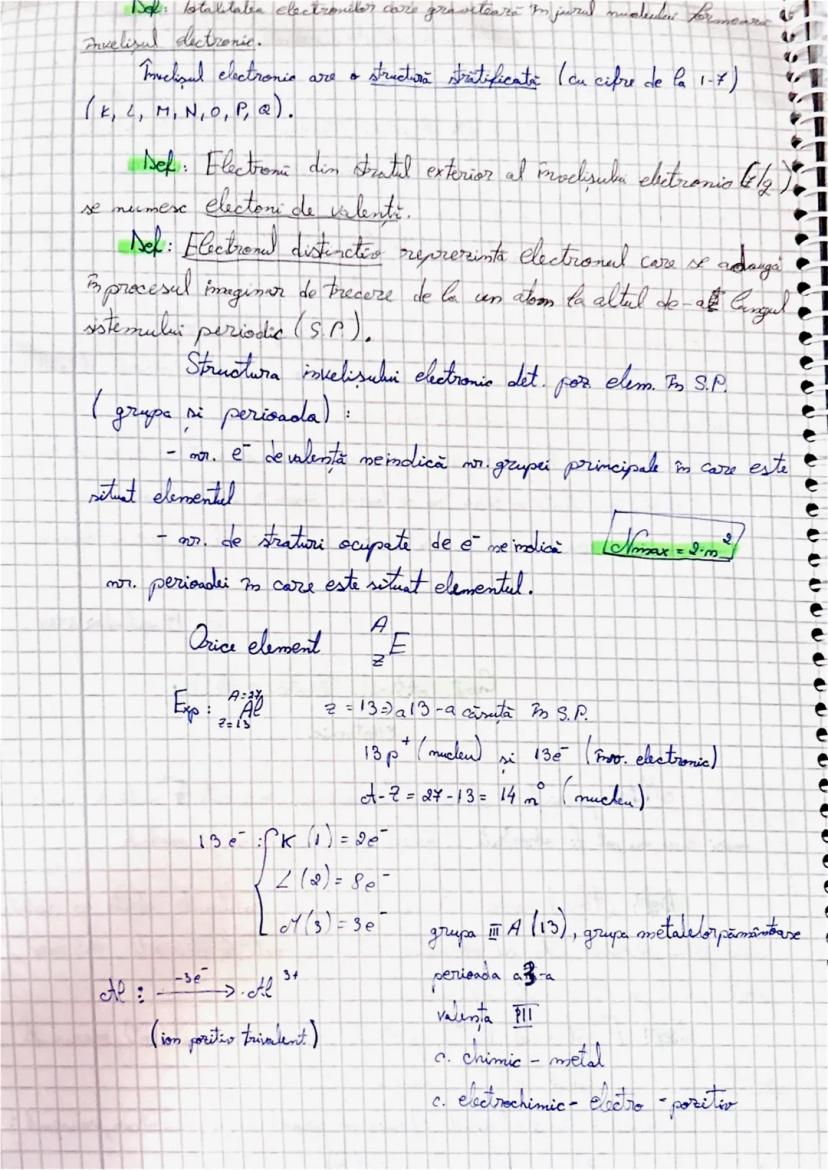 Def: Totalitatea electronilor care gravitează în jurul nucleului formează
învelișul electronic.
Învelișul electronic are o structură stratificată (cu cifre de la 1-7)
(K, L, M, N, O, P, Q).
Def: Electronii din stratul exterior al învelișului electronic
se numesc electoni de valență.
Def: Electronul distinctiv reprezintă electronul care se adaugă
în procesul imaginar de trecere de la un atom la altul de-a lungul
sistemului periodic (S.P.).
Structura învelișului electronic det. poz. elem. în S.P.
(grupa și perioada):
- nr. e⁻ de valență ne indică nr. grupei principale în care este
situat elementul
- nr. de straturi ocupate de e⁻ ne indică Nmax = 2·n²
nr. perioadei în care este situat elementul.
Orice element A Z E
Exp: A=27 Z=13 Al z = 13 => a 13-a căsuță în S.P.
13p⁺ (nucleu) și 13e⁻ (înv. electronic)
A-Z = 27-13 = 14 n⁰ (nucleu)
13e⁻: { K (1) = 2e⁻
L (2) = 8e⁻
M (3) = 3e⁻
grupa III A (13), grupa metalelor pământoase
perioada a 3-a
Al: -3e⁻ → Al³⁺
valența III
(ion pozitiv trivalent)
c. chimic - metal
c. electrochimic - electro-pozitiv